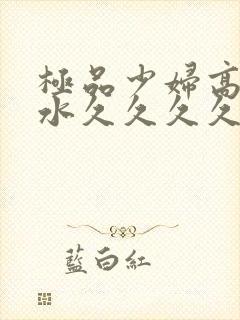 極品少婦高
水久久久久
藍白紅